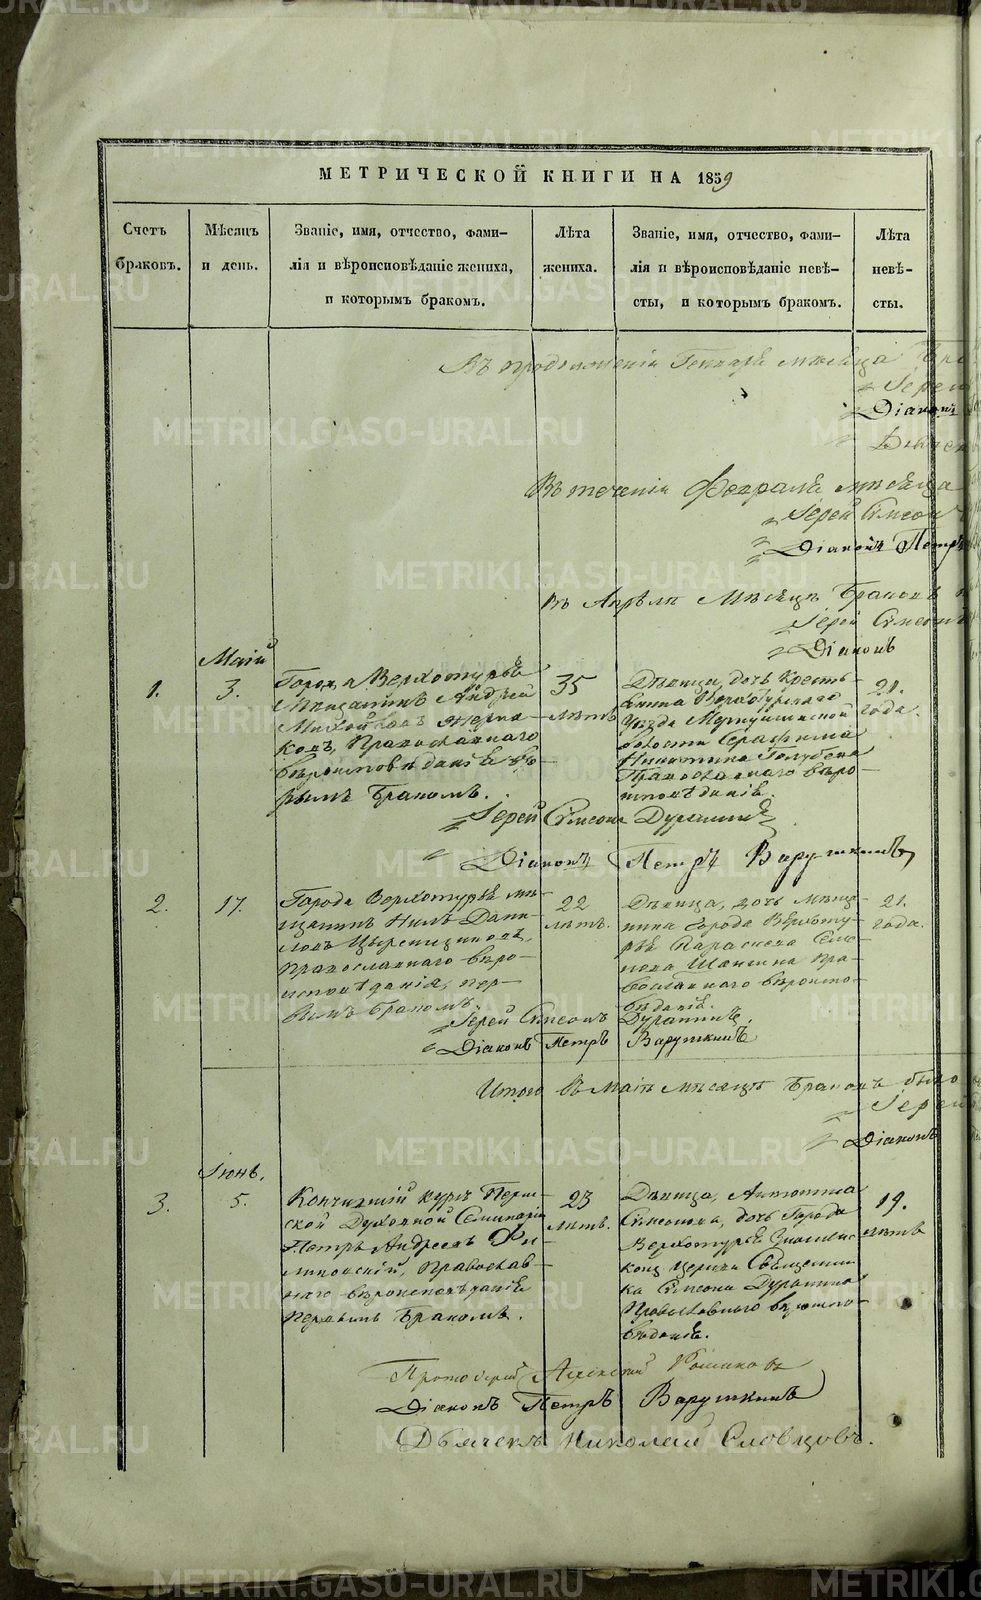 МЕТРИЧЕСКОЙ КНИГИ НА 1859
Счетъ браковъ.
Мѣсяцъ и день.
Званіе, имя, отчество, фами-
лія и вѣроисповѣданіе жениха,
и которымъ бракомъ.
Лѣта жениха.
Званіе, имя, отчество, фами-
лія и вѣроисповѣданіе невѣ-
сты, и которымъ бракомъ.
Лѣта невѣ-
сты.
Въ продолженіи Генваря мѣсяца
Іерей
Діаконъ
Въ теченіи Февраля мѣсяца
Іерей Симеонъ
Діаконъ Петръ
Въ Апрѣлѣ Мѣсяцѣ Браковъ
Іерей Симеонъ
Діаконъ
Маій
1.
3.
Города Верхотурья
Мѣщанинъ Андрей
Православнаго
вѣроисповѣданія, вто-
рымъ бракомъ.
35
лѣтъ
Дѣвица, дочь Кресть-
янина Верхотурскаго
Уѣзда
волости Серафима
Никитина Голубева
Православнаго вѣро-
исповѣданія.
21.
года.
Іерей Симеонъ Дурапинъ
Діаконъ Петръ Варушкинъ
2.
17.
Города Верхотурья мѣ-
щанинъ Нилъ Дани-
ловъ
Православнаго вѣро-
исповѣданія, пер-
вымъ бракомъ.
22
лѣтъ.
Дѣвица, дочь мѣща-
нина города Верхоту-
рья Параскева Семе-
нова Шангина Пра-
вославнаго вѣроиспо-
вѣданія.
21.
года.
Іерей Симеонъ Дурапинъ.
Діаконъ Петръ Варушкинъ
Итого въ Маіѣ мѣсяцѣ Браковъ было
Іерей
Діаконъ
Іюнь.
3.
5.
Кончившій курсъ Перм-
ской Духовной Семинаріи
Петръ Андреевъ Фи-
липовскій, Православ-
наго вѣроисповѣданія
Первымъ Бракомъ.
23
лѣтъ.
Дѣвица, Антонина
Симеонова, дочь Города
Верхотурья Знаменс-
кой Церкви Священни-
ка Симеона Дурапина
Православнаго вѣроиспо-
вѣданія.
19.
лѣтъ
Протоіерей
Діаконъ Петръ Варушкинъ
Дьячекъ Николай Словцовъ.
METRIKI.GASO-URAL.RU